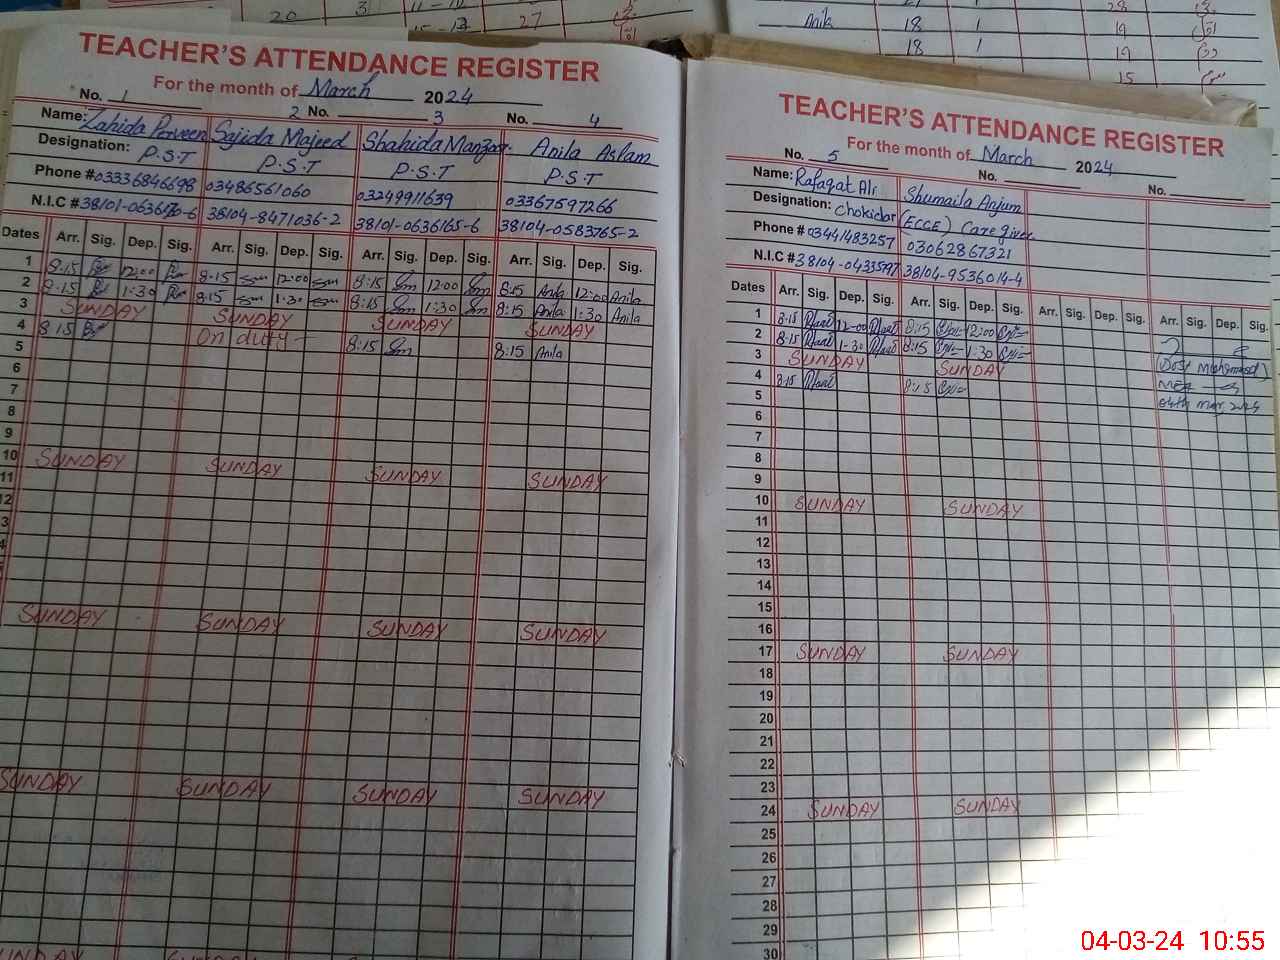 20 3
27
Anila 18 1 19
18 1 19
28
15
TEACHER'S ATTENDANCE REGISTER
For the month of March 2024
No. 1 2 No. 3 No. 4
Name: Zahida Parveen Sajida Majeed Shahida Manzoor Anila Aslam
Designation: P.S.T P.S.T P.S.T P.S.T
Phone # 03336846698 03486561060 03249911639 03367597266
N.I.C # 38104-8471036-2 38101-0636165-6 38104-0583765-2
Dates Arr. Sig. Dep. Sig. Arr. Sig. Dep. Sig. Arr. Sig. Dep. Sig. Arr. Sig. Dep. Sig.
1 8:15 12:00 8:15 12:00 8:15 12:00 8:15 Anila 12:00 Anila
2 8:15 1:30 8:15 1:30 8:15 1:30 8:15 Anila 1:30 Anila
3 SUNDAY SUNDAY SUNDAY SUNDAY
4 8:15 On duty 8:15 8:15 Anila
5
6
7
8
9
10 SUNDAY SUNDAY SUNDAY SUNDAY
11
12
3
4
SUNDAY SUNDAY SUNDAY SUNDAY
SUNDAY SUNDAY SUNDAY SUNDAY
TEACHER'S ATTENDANCE REGISTER
For the month of March 2024
No. 5 No. No.
Name: Rafaqat Ali Shumaila Anjum
Designation: Chokidar (ECCE) Care giver
Phone # 03441483257 03062867321
N.I.C # 38104-9536014-4
Dates Arr. Sig. Dep. Sig. Arr. Sig. Dep. Sig. Arr. Sig. Dep. Sig. Arr. Sig. Dep. Sig.
1 8:15 12:00 8:15 12:00
2 8:15 1:30 8:15 1:30
3 SUNDAY SUNDAY
4 8:15 8:15
5
6
7
8
9
10 SUNDAY SUNDAY
11
12
13
14
15
16
17 SUNDAY SUNDAY
18
19
20
21
22
23
24 SUNDAY SUNDAY
25
26
27
28
29
30
04-03-24 10:55